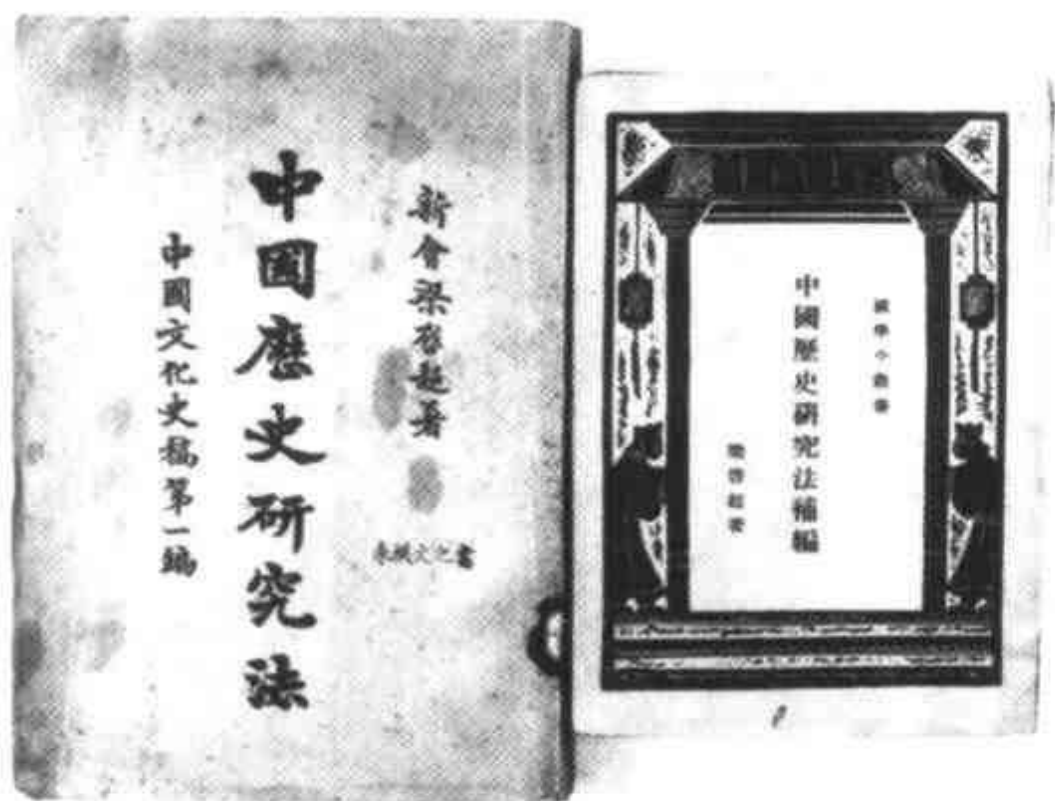 新會梁啓超著
中國歷史研究法
中國文化史稿第一編
國學小叢書
中國歷史研究法補編
梁啓超著